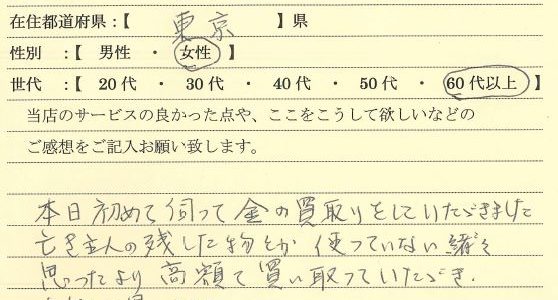 在住都道府県:【 東京 】県
性別 :【 男性 ・ 女性 】
世代 :【 20代 ・ 30代 ・ 40代 ・ 50代 ・ 60代以上 】
当店のサービスの良かった点や、ここをこうして欲しいなどの
ご感想をご記入お願い致します。
本日初めて伺って金の買取りをしていただきました
亡き主人の残した物とか使っていない
思ったより高額で買い取っていただき、